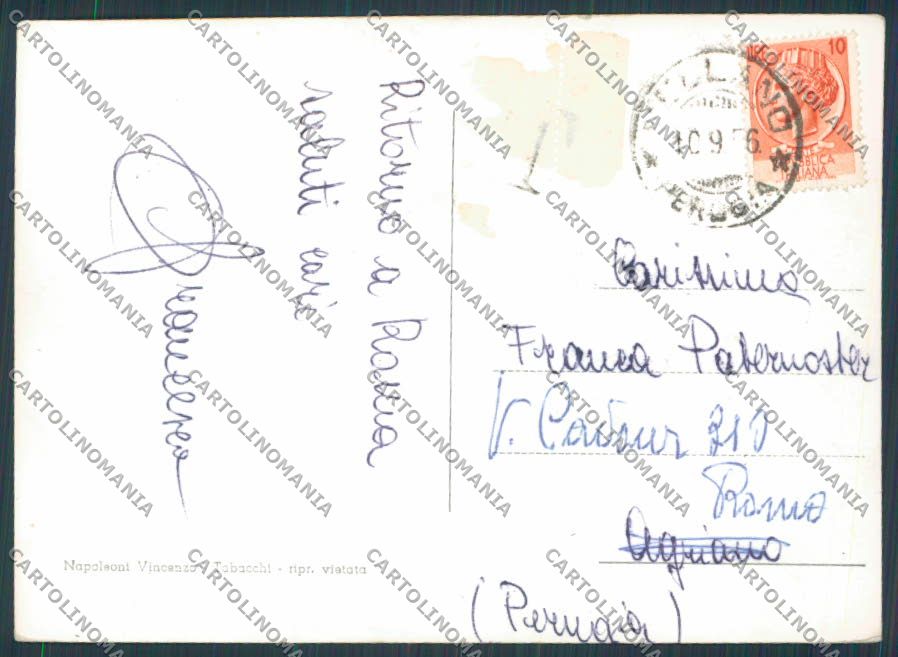 Ritorno a Roma
saluti cari
Francesco
10
REPUBBLICA
ITALIANA
SELLANO
10.9.56
PERUGIA
Carissima
Franca Paternoster
V. Cavour 310
Roma
Agriano
(Perugia)
Napoleoni Vincenzo Tabacchi - ripr. vietata
CARTOLINOMANIA